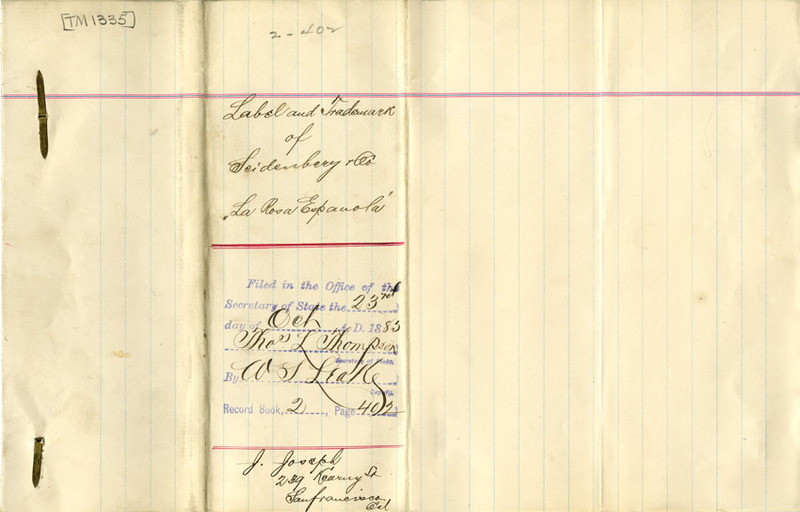 [TM1335]
2-402
Label and Trademark
of
Seidenberg & Co
"La Rosa Espanola"
Filed in the Office of the
Secretary of State the 23rd
day of Oct A.D. 1883
Thos L Thompson
Secretary of State.
By W S Leake
Deputy.
Record Book, 2, Page 402
J. Joseph
239 Kearny St
Sanfrancisco
Cal